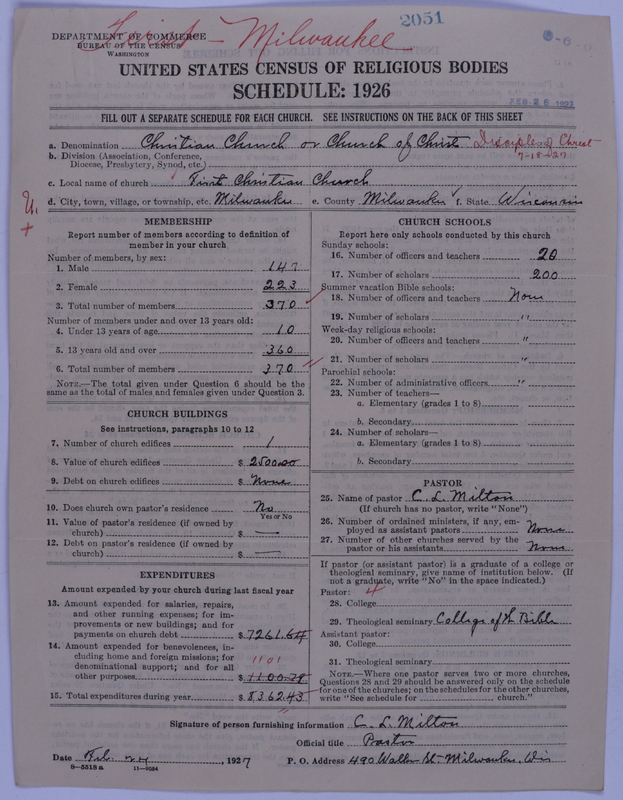 2051
First - Milwaukee
DEPARTMENT OF COMMERCE
BUREAU OF THE CENSUS
WASHINGTON
UNITED STATES CENSUS OF RELIGIOUS BODIES
SCHEDULE: 1926
FEB 26 1927
FILL OUT A SEPARATE SCHEDULE FOR EACH CHURCH. SEE INSTRUCTIONS ON THE BACK OF THIS SHEET
a. Denomination Christian Church or Church of Christ Disciples of Christ
b. Division (Association, Conference, Diocese, Presbytery, Synod, etc.) 7-18-27
c. Local name of church First Christian Church
d. City, town, village, or township, etc. Milwaukee e. County Milwaukee f. State Wisconsin
MEMBERSHIP
Report number of members according to definition of
member in your church
Number of members, by sex:
1. Male 147
2. Female 223
3. Total number of members 370
Number of members under and over 13 years old:
4. Under 13 years of age 10
5. 13 years old and over 360
6. Total number of members 370
NOTE.—The total given under Question 6 should be the
same as the total of males and females given under Question 3.
CHURCH BUILDINGS
See instructions, paragraphs 10 to 12
7. Number of church edifices 1
8. Value of church edifices $ 25000.00
9. Debt on church edifices $ None
10. Does church own pastor's residence No
Yes or No
11. Value of pastor's residence (if owned by
church) $ —
12. Debt on pastor's residence (if owned by
church) $ —
EXPENDITURES
Amount expended by your church during last fiscal year
13. Amount expended for salaries, repairs,
and other running expenses; for im-
provements or new buildings; and for
payments on church debt $ 7261.64
14. Amount expended for benevolences, in-
cluding home and foreign missions; for
denominational support; and for all 1101
other purposes $ 1100.79
15. Total expenditures during year $ 8362.43
CHURCH SCHOOLS
Report here only schools conducted by this church
Sunday schools:
16. Number of officers and teachers 20
17. Number of scholars 200
Summer vacation Bible schools:
18. Number of officers and teachers None
19. Number of scholars "
Week-day religious schools:
20. Number of officers and teachers "
21. Number of scholars "
Parochial schools:
22. Number of administrative officers "
23. Number of teachers—
a. Elementary (grades 1 to 8)
b. Secondary
24. Number of scholars—
a. Elementary (grades 1 to 8)
b. Secondary
PASTOR
25. Name of pastor C. L. Milton
(If church has no pastor, write "None")
26. Number of ordained ministers, if any, em-
ployed as assistant pastors None
27. Number of other churches served by the
pastor or his assistants None
If pastor (or assistant pastor) is a graduate of a college or
theological seminary, give name of institution below. (If
not a graduate, write "No" in the space indicated.)
Pastor: 4
28. College
29. Theological seminary College of the Bible
Assistant pastor:
30. College
31. Theological seminary
NOTE.—Where one pastor serves two or more churches,
Questions 28 and 29 should be answered only on the schedule
for one of the churches; on the schedules for the other churches,
write "See schedule for church."
Signature of person furnishing information C. L. Milton
Official title Pastor
Date Feb. 24, 1927 P. O. Address 490 Walker St. Milwaukee, Wis
8—5518 a 11—9034